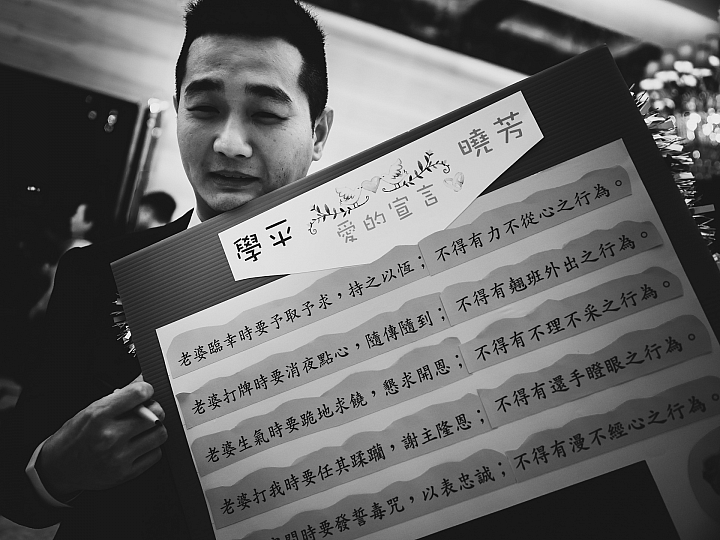 學立 愛的宣言 曉芳
老婆臨幸時要予取予求，持之以恆；不得有力不從心之行為。
老婆打牌時要消夜點心，隨傳隨到；不得有翹班外出之行為。
老婆生氣時要跪地求饒，懇求開恩；不得有不理不采之行為。
老婆打我時要任其蹂躪，謝主隆恩；不得有還手瞪眼之行為。
問時要發誓毒咒，以表忠誠；不得有漫不經心之行為。